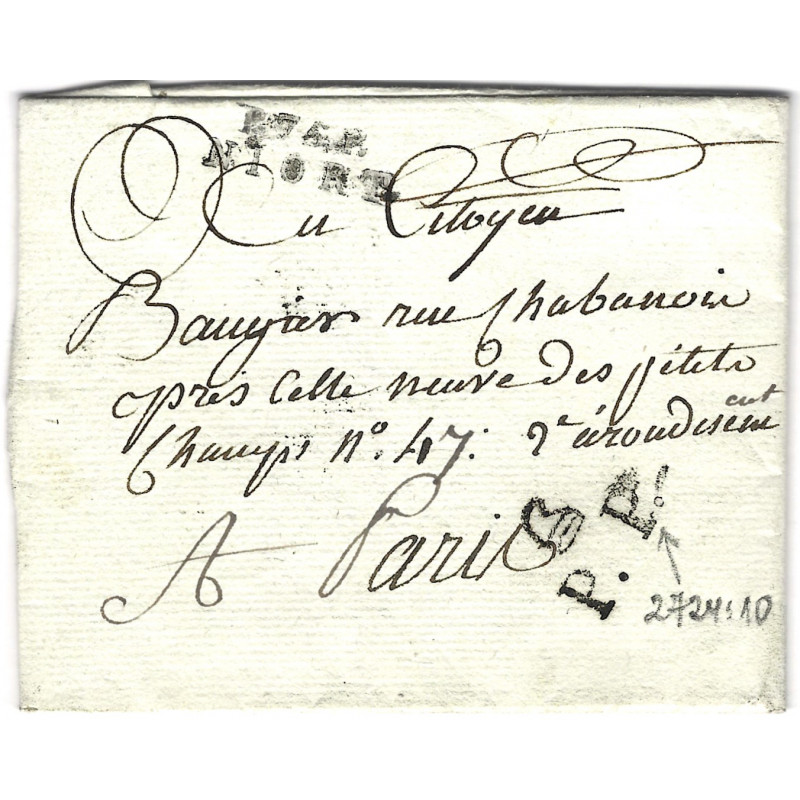 P.74.P.
NIORT
Au Citoyen
Baugier rue Chabanoin
près celle neuve des petits
Champs n°. 47. 2e arondisem ent
A Paris
P. P.
2724:10